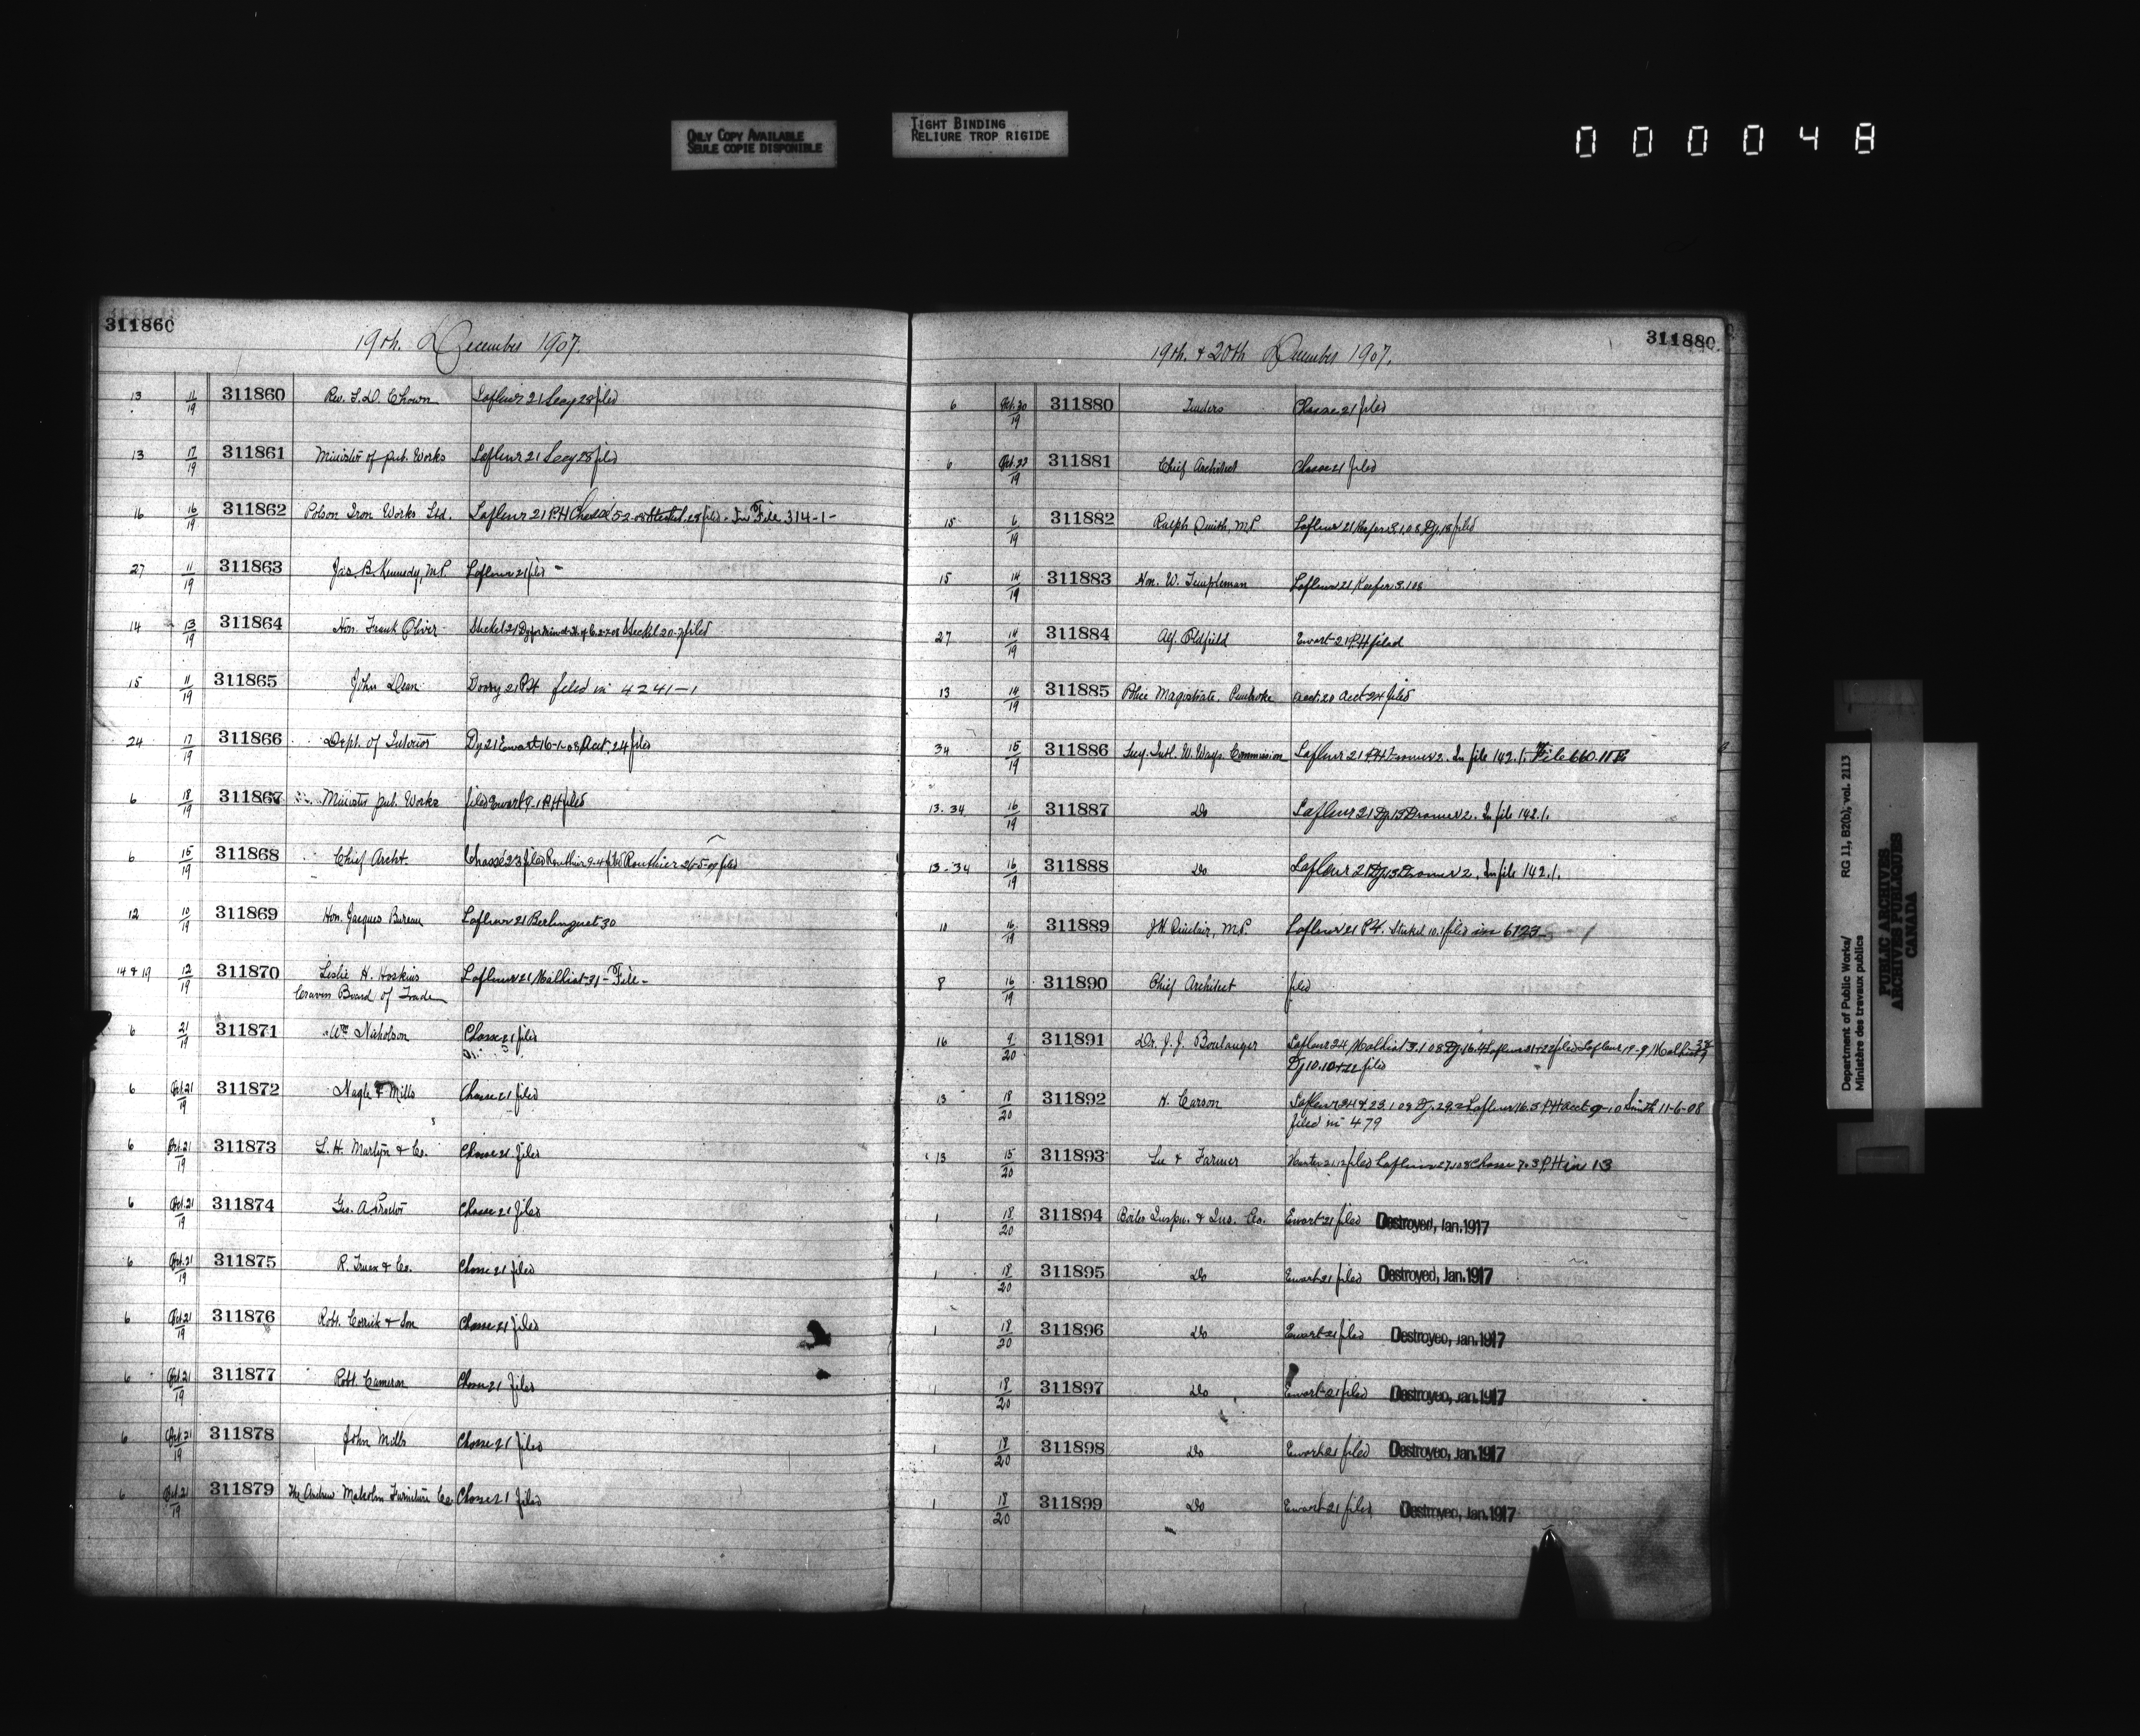 ONLY COPY AVAILABLE
SEULE COPIE DISPONIBLE
TIGHT BINDING
RELIURE TROP RIGIDE
000048
311860
19th. December 1907.
13 11/19 311860 Rev. S.D. Chown Lafleur 21 Secy 28 filed
13 17/19 311861 Minister of pub. Works Lafleur 21 Secy 28 filed
16 16/19 311862 Polson Iron Works Ltd. Lafleur 21 PH 28 filed - In File 314-1-
27 11/19 311863 Jas. B. Kennedy, M.P. Lafleur 21 filed -
14 13/19 311864 Hon. Frank Oliver Steckel 21 Steckel 20-7 filed
15 11/19 311865 John Dean 21 PH filed in 4241-1
24 17/19 311866 Dept. of Interior Dy 21 Ewart 16-1-08 Acct. 24 filed
6 18/19 311867 Minister pub. Works filed Ewart 9-1 PH filed
6 15/19 311868 Chief Archt. Chasse 23 filed Routhier 9-4 filed Routhier 26-5-09 filed
12 10/19 311869 Hon. Jacques Bureau Lafleur 21 Berlinguet 30
14 & 19 12/19 311870 Leslie H. Hoskins Lafleur 21 Malhiot 31 - File -
Craven Board of Trade
6 21/19 311871 Wm Nicholson Chasse 21 filed
6 Oct.21/19 311872 Nagle & Mills Chasse 21 filed
6 Oct.21/19 311873 L. H. Martyn & Co. Chasse 21 filed
6 Oct.21/19 311874 Geo. A Proctor Chasse 21 filed
6 Oct.21/19 311875 R. Truax & Co. Chasse 21 filed
6 Oct.21/19 311876 Robt. Corrick & Son Chasse 21 filed
6 Oct.21/19 311877 Robt. Cameron Chasse 21 filed
6 Oct.21/19 311878 John Mills Chasse 21 filed
6 Oct.21/19 311879 The Andrew Malcolm Furniture Co Chasse 21 filed
311880
19th. & 20th December 1907.
6 Oct.30/19 311880 Tenders Chasse 21 filed
6 Oct.23/19 311881 Chief Architect Chasse 21 filed
15 6/19 311882 Ralph Smith, M.P. Lafleur 21 Keefer 3.1.08 Dy. 18 filed
15 14/19 311883 Hon. W. Templeman Lafleur 21 Keefer 3.1.08
27 14/19 311884 Alf. Oldfield Ewart 21 P.H filed
13 14/19 311885 Police Magistrate, Pembroke acct. 20 acct 24 filed
34 15/19 311886 Secy. Intl. W. Ways. Commission Lafleur 21 PH 2. In file 142.1. File 660.11
13.34 16/19 311887 Do Lafleur 21 Dy. 13 2. In file 142.1.
13.34 16/19 311888 Do Lafleur 21 Dy. 13 2. In file 142.1.
10 16/19 311889 J.H. Sinclair, M.P. Lafleur 21 P.H. Steckel 10.1 filed in 6123-1
8 16/19 311890 Chief Architect filed
16 9/20 311891 Dr. J. J. Boulanger Lafleur 24 Malhiot 3.1.08 Dy. 16.4 Lafleur 21+22 filed Lafleur 19-9 Malhiot
Dy 10.10+22 filed
13 18/20 311892 H. Carson Lafleur 24 & 23.1.08 Dy. 29.2 Lafleur 16.3 PH acct 9-10 Smith 11-6-08
filed in 479
13 15/20 311893 Lee & Farmer Hunter 21.12 filed Lafleur 27.1.08 Chasse 7.3 P.H in 13
1 18/20 311894 Boiler Inspn. & Ins. Co. Ewart 21 filed Destroyed, Jan. 1917
1 18/20 311895 Do Ewart 21 filed Destroyed, Jan. 1917
1 18/20 311896 Do Ewart 21 filed Destroyed, Jan. 1917
1 18/20 311897 Do Ewart 21 filed Destroyed, Jan. 1917
1 18/20 311898 Do Ewart 21 filed Destroyed, Jan. 1917
1 18/20 311899 Do Ewart 21 filed Destroyed, Jan. 1917
Department of Public Works/ RG 11, B2(b), vol. 2113
Ministère des travaux publics
PUBLIC ARCHIVES
ARCHIVES PUBLIQUES
CANADA